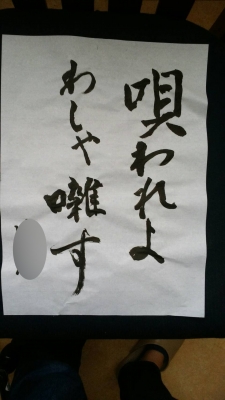 唄われよ
わしゃ囃す